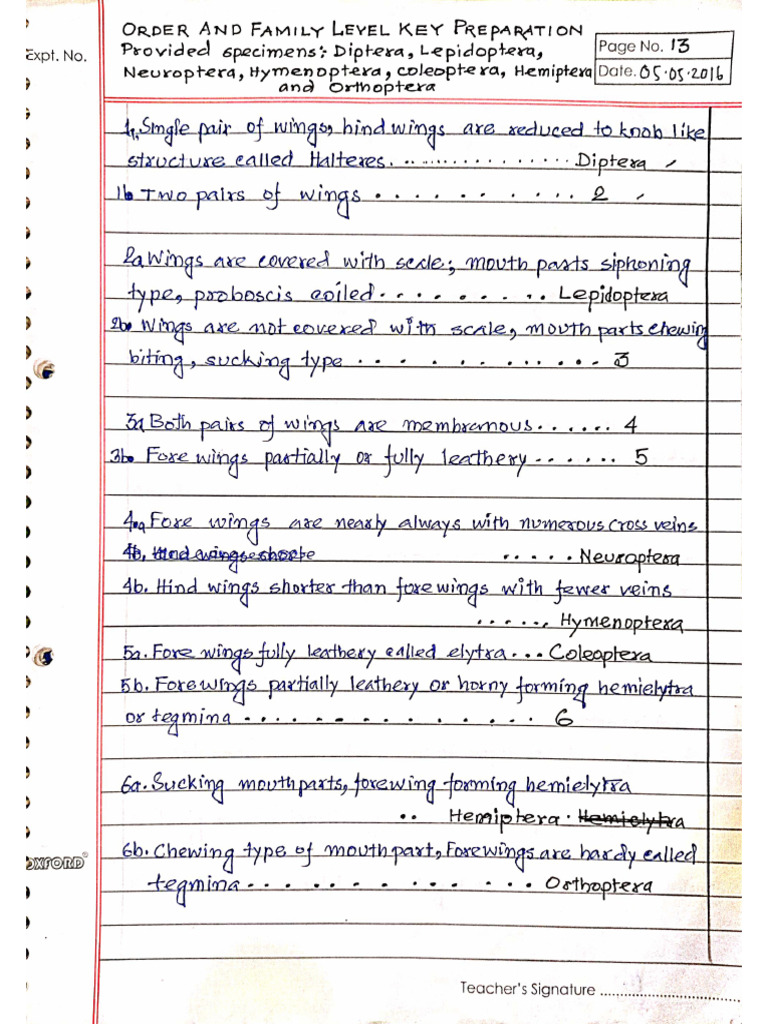 ORDER AND FAMILY LEVEL KEY PREPARATION
Provided specimens: Diptera, Lepidoptera,
Neuroptera, Hymenoptera, coleoptera, Hemiptera
and Orthoptera
Expt. No.
Page No. 13
Date. 05.05.2016
1a. Single pair of wings, hind wings are reduced to knob like
structure called Halteres. ................... Diptera
1b. Two pairs of wings .......... 2
2a. Wings are covered with scale; mouth parts siphoning
type, proboscis coiled......... Lepidoptera
2b. Wings are not covered with scale, mouth parts chewing
biting, sucking type ........... 3
3a. Both pairs of wings are membranous...... 4
3b. Fore wings partially or fully leathery...... 5
4.a Fore wings are nearly always with numerous cross veins
4b, Hind wings shorte ..... Neuroptera
4b. Hind wings shorter than fore wings with fewer veins
...... Hymenoptera
5a. Fore wings fully leathery called elytra... Coleoptera
5b. Fore wings partially leathery or horny forming hemielytra
or tegmina ............. 6
6a. Sucking mouth parts, forewing forming hemielytra
.. Hemiptera. Hemielytra
6b. Chewing type of mouth part, Fore wings are hardy called
tegmina ........... Orthoptera
OXFORD®
Teacher's Signature ..............................